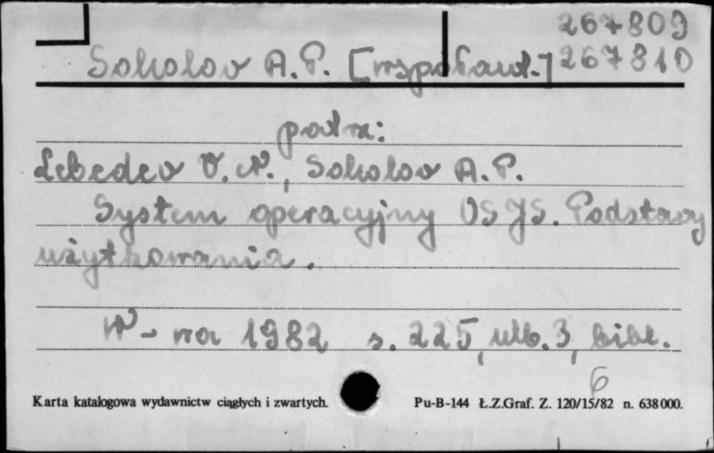 267809
Sokolov A.P. [współaut.] 267810
patrz:
Lebedev V.N., Sokolov A.P.
System operacyjny OS JS. Podstawy
użytkowania.
W-wa 1982 s. 225, nlb. 3, bibl.
6
Karta katalogowa wydawnictw ciągłych i zwartych. Pu-B-144 Ł.Z.Graf. Z. 120/15/82 n. 638000.